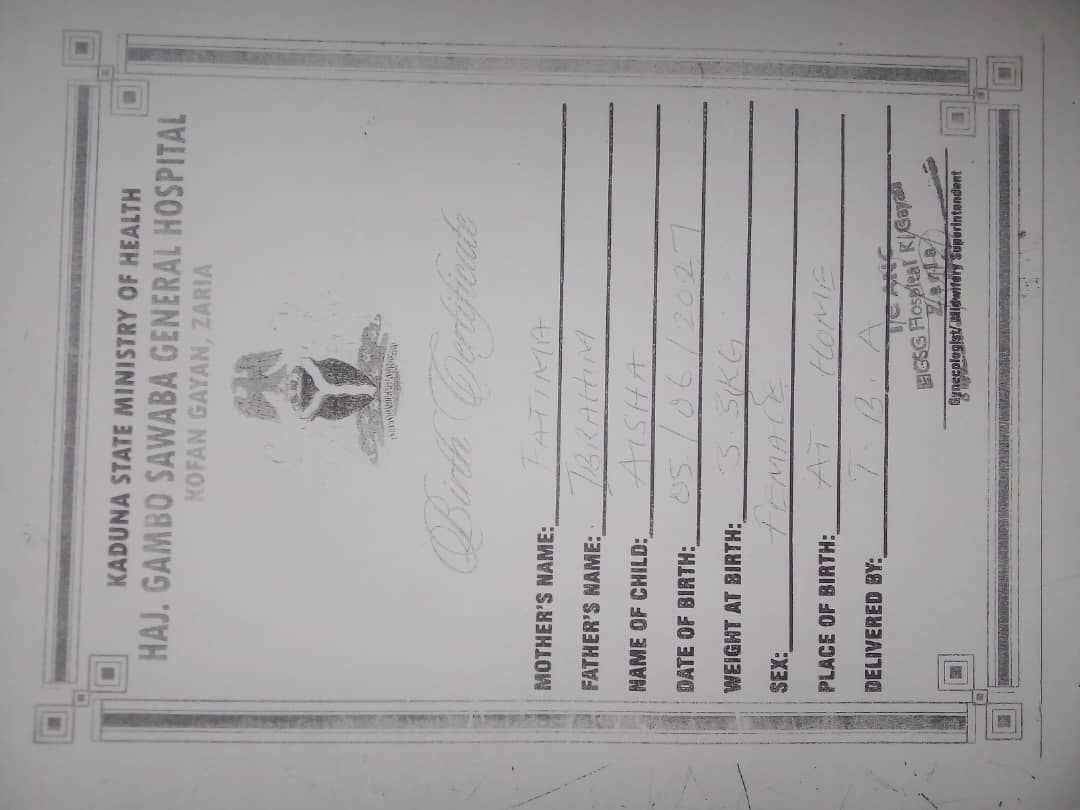 KADUNA STATE MINISTRY OF HEALTH
HAJ. GAMBO SAWABA GENERAL HOSPITAL
KOFAN GAYAN, ZARIA
Birth Certificate
MOTHER'S NAME: FATIMA
FATHER'S NAME: IBRAHIM
NAME OF CHILD: AISHA
DATE OF BIRTH: 05/06/2027
WEIGHT AT BIRTH: 3.5KG
SEX: FEMALE
PLACE OF BIRTH: AT HOME
DELIVERED BY: T.B.A
HGSG Hospital K/Gayan
Zaria
Gynecologist/Midwifery Superintendent